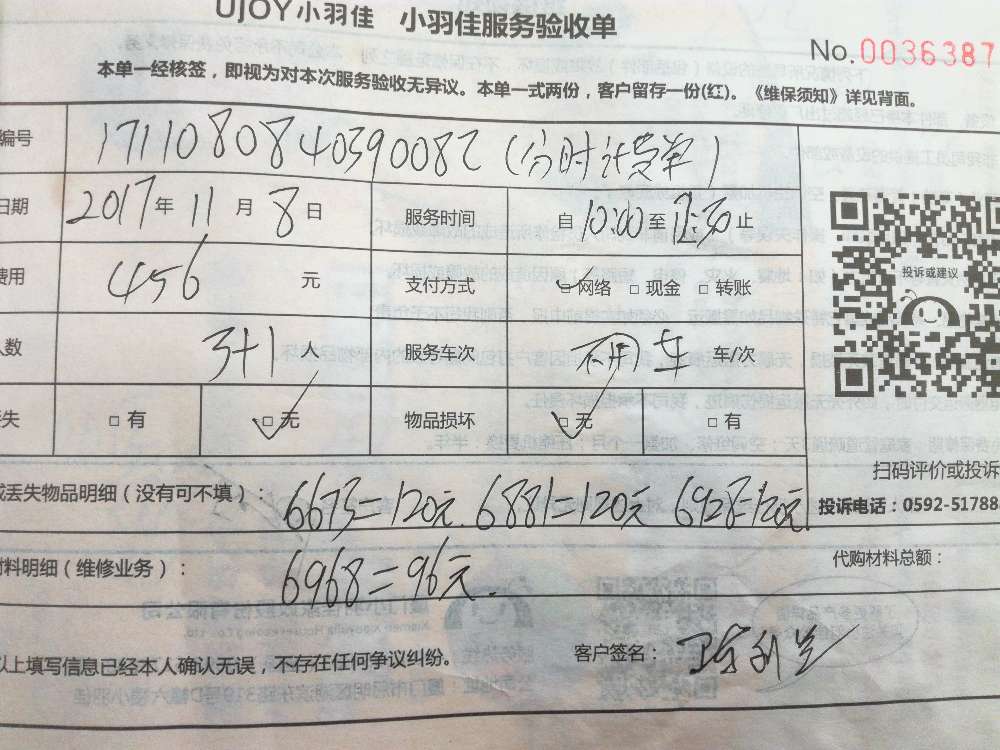 UJOY小羽佳 小羽佳服务验收单
No.0036387
本单一经核签，即视为对本次服务验收无异议。本单一式两份，客户留存一份(红)。《维保须知》详见背面。
编号 1711080840390082（分时计费单）
日期 2017年11月8日 服务时间 自10:00至 止
费用 456 元 支付方式 ☑网络 □现金 □转账
人数 3+1 人 服务车次 不用车 车/次
丢失 □有 ☑无 物品损坏 ☑无 □有
投诉或建议
扫码评价或投诉
或丢失物品明细（没有可不填）：6673=120元. 6881=120元 6928=120元
投诉电话：0592-51788
材料明细（维修业务）：6968=96元.
代购材料总额：
以上填写信息已经本人确认无误，不存在任何争议纠纷。
客户签名：